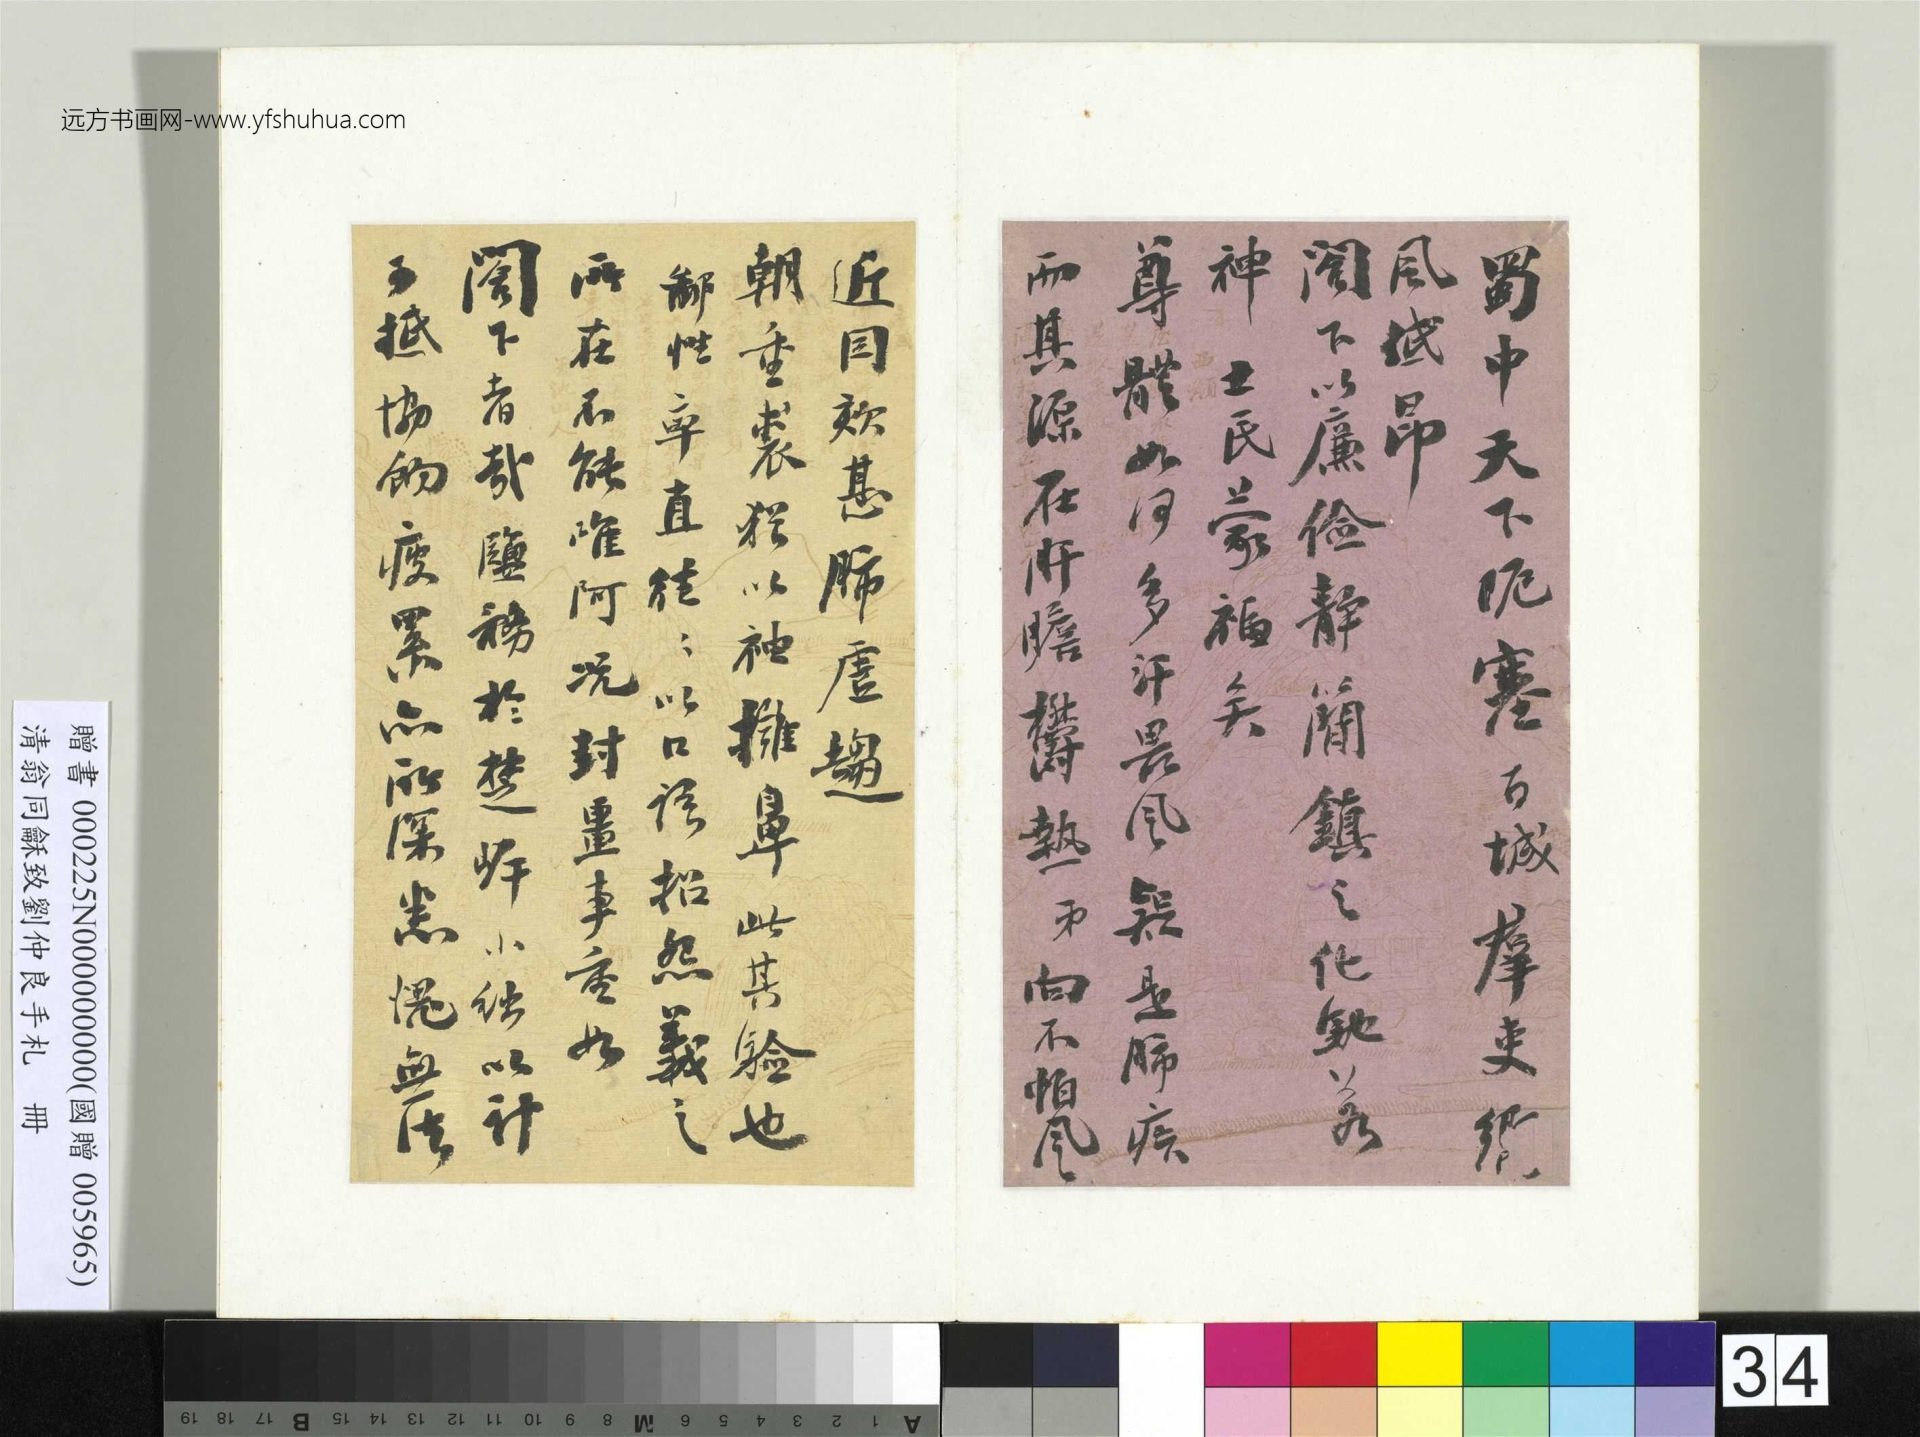 远方书画网-www.yfshuhua.com
蜀中天下阨塞百城群吏
風抵昂
閤下以廉儉靜簡鎮之化
神士民蒙福矣
尊體如何多汗畏風疑是肺疾
而其源在肝膽鬱熱弟向不怕風
近因欬甚肺虛趨
朝重裘猶以袖擁鼻此其驗也
鄙性率直往〻以口語招怨義之
所在不能唯阿況封疆事重如
閤下者哉鹽務於楚岸小絀以計
子抵協餉疲累亦所深悉愧無法
贈書 000225N000000000(國贈 005965)
清翁同龢致劉仲良手札 冊
A 1 2 3 4 5 6 M 8 9 10 11 12 13 14 15 B 17 18 19
34